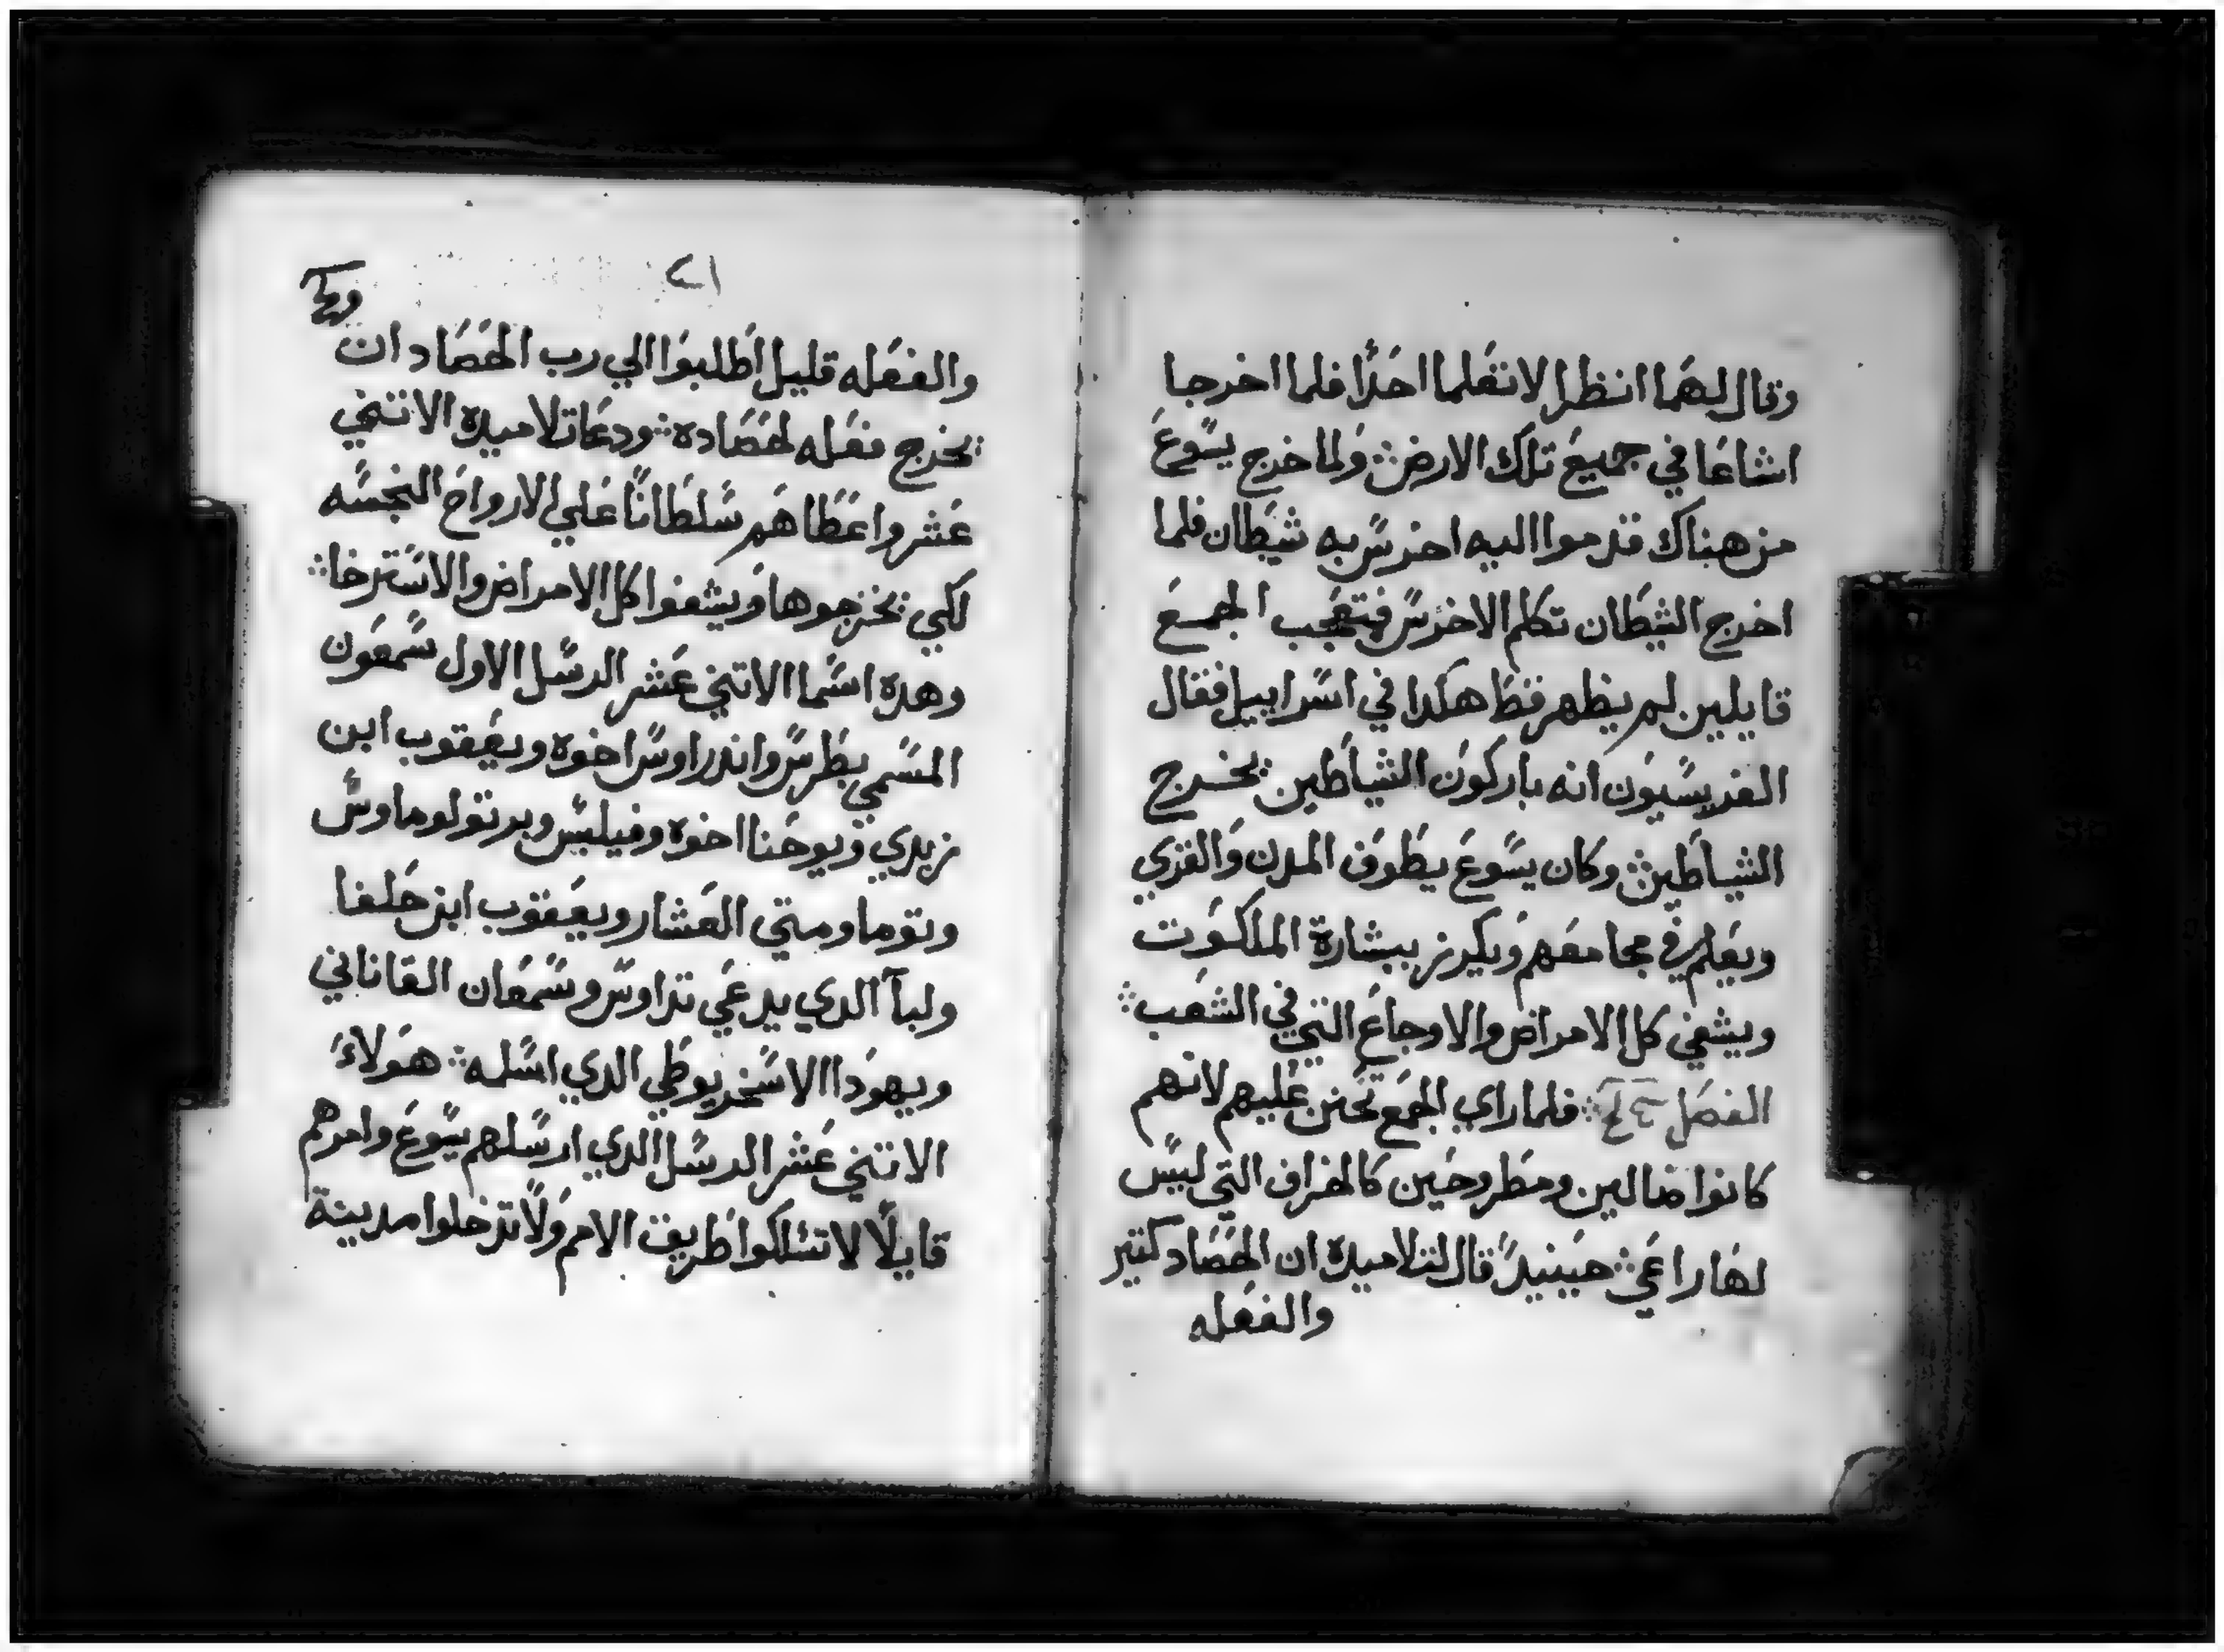 وقال لهما انظرا لا تعلما احدًا فلما اخرجا
اشاعا في جميع تلك الارض ولما خرج يسوع
من هناك قدموا اليه اخرس به شيطان فلما
اخرج الشيطان تكلم الاخرس فتعجب الجمع
قايلين لم يظهر قط هكدا في اسراييل فقال
الفريسيون انه باركون الشياطين يخرج
الشياطين وكان يسوع يطوف المدن والقري
ويعلم في مجامعهم ويكرز ببشارة الملكوت
ويشفي كل الامراض والاوجاع التي في الشعب
الفصل فلما راي الجمع تحنن عليهم لانهم
كانوا ضالين ومطروحين كالخراف التي ليس
لها راعي حينيدً قال لتلاميده ان الحصاد كتير
والفعله
٢١
والفعله قليل اطلبوا الي رب الحصاد ان
يخرج فعله لحصاده ودعا تلاميده الاتني
عشر واعطاهم سلطانًا علي الارواح النجسه
لكي يخرجوها ويشفوا كل الامراض والاسترخا
وهده اسما الاتني عشر الرسل الاول سمعون
المسمي بطرس واندراوس اخوه ويعقوب ابن
زبدي ويوحنا اخوه وفيلبس وبرتولوماوس
وتوما ومتي العشار ويعقوب ابن حلفا
ولبآ الدي يدعي تداوس وسمعان القاناني
ويهودا الاسخريوطي الدي اسلمه هولاء
الاتني عشر الرسل الدي ارسلهم يسوع وامرهم
قايلًا لا تسلكوا طريق الامم ولا تدخلوا مدينة